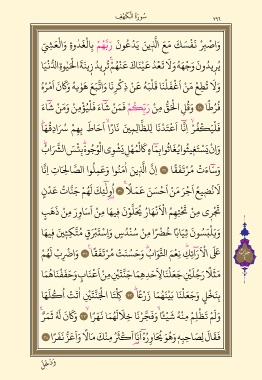 سُورَةُ الْكَهْفِ
٢٩٦
وَاصْبِرْ نَفْسَكَ مَعَ الَّذِينَ يَدْعُونَ رَبَّهُمْ بِالْغَدٰوةِ وَالْعَشِيِّ
يُرِيدُونَ وَجْهَهُ وَلَا تَعْدُ عَيْنَاكَ عَنْهُمْ تُرِيدُ زِينَةَ الْحَيٰوةِ الدُّنْيَا
وَلَا تُطِعْ مَنْ اَغْفَلْنَا قَلْبَهُ عَنْ ذِكْرِنَا وَاتَّبَعَ هَوٰيهُ وَكَانَ اَمْرُهُ
فُرُطًا ٢٨ وَقُلِ الْحَقُّ مِنْ رَبِّكُمْ فَمَنْ شَاءَ فَلْيُؤْمِنْ وَمَنْ شَاءَ
فَلْيَكْفُرْ اِنَّا اَعْتَدْنَا لِلظَّالِمِينَ نَارًا اَحَاطَ بِهِمْ سُرَادِقُهَا
وَاِنْ يَسْتَغِيثُوا يُغَاثُوا بِمَاءٍ كَالْمُهْلِ يَشْوِي الْوُجُوهَ بِئْسَ الشَّرَابُ
وَسَاءَتْ مُرْتَفَقًا ٢٩ اِنَّ الَّذِينَ اٰمَنُوا وَعَمِلُوا الصَّالِحَاتِ اِنَّا
لَا نُضِيعُ اَجْرَ مَنْ اَحْسَنَ عَمَلًا ٣٠ اُولٰئِكَ لَهُمْ جَنَّاتُ عَدْنٍ
تَجْرِي مِنْ تَحْتِهِمُ الْاَنْهَارُ يُحَلَّوْنَ فِيهَا مِنْ اَسَاوِرَ مِنْ ذَهَبٍ
وَيَلْبَسُونَ ثِيَابًا خُضْرًا مِنْ سُنْدُسٍ وَاِسْتَبْرَقٍ مُتَّكِئِينَ فِيهَا
عَلَى الْاَرَائِكِ نِعْمَ الثَّوَابُ وَحَسُنَتْ مُرْتَفَقًا ٣١ وَاضْرِبْ لَهُمْ
مَثَلًا رَجُلَيْنِ جَعَلْنَا لِاَحَدِهِمَا جَنَّتَيْنِ مِنْ اَعْنَابٍ وَحَفَفْنَاهُمَا
بِنَخْلٍ وَجَعَلْنَا بَيْنَهُمَا زَرْعًا ٣٢ كِلْتَا الْجَنَّتَيْنِ اٰتَتْ اُكُلَهَا
وَلَمْ تَظْلِمْ مِنْهُ شَيْئًا وَفَجَّرْنَا خِلَالَهُمَا نَهَرًا ٣٣ وَكَانَ لَهُ ثَمَرٌ
فَقَالَ لِصَاحِبِهِ وَهُوَ يُحَاوِرُهُ اَنَا اَكْثَرُ مِنْكَ مَالًا وَاَعَزُّ نَفَرًا ٣٤
وَدَخَلَ